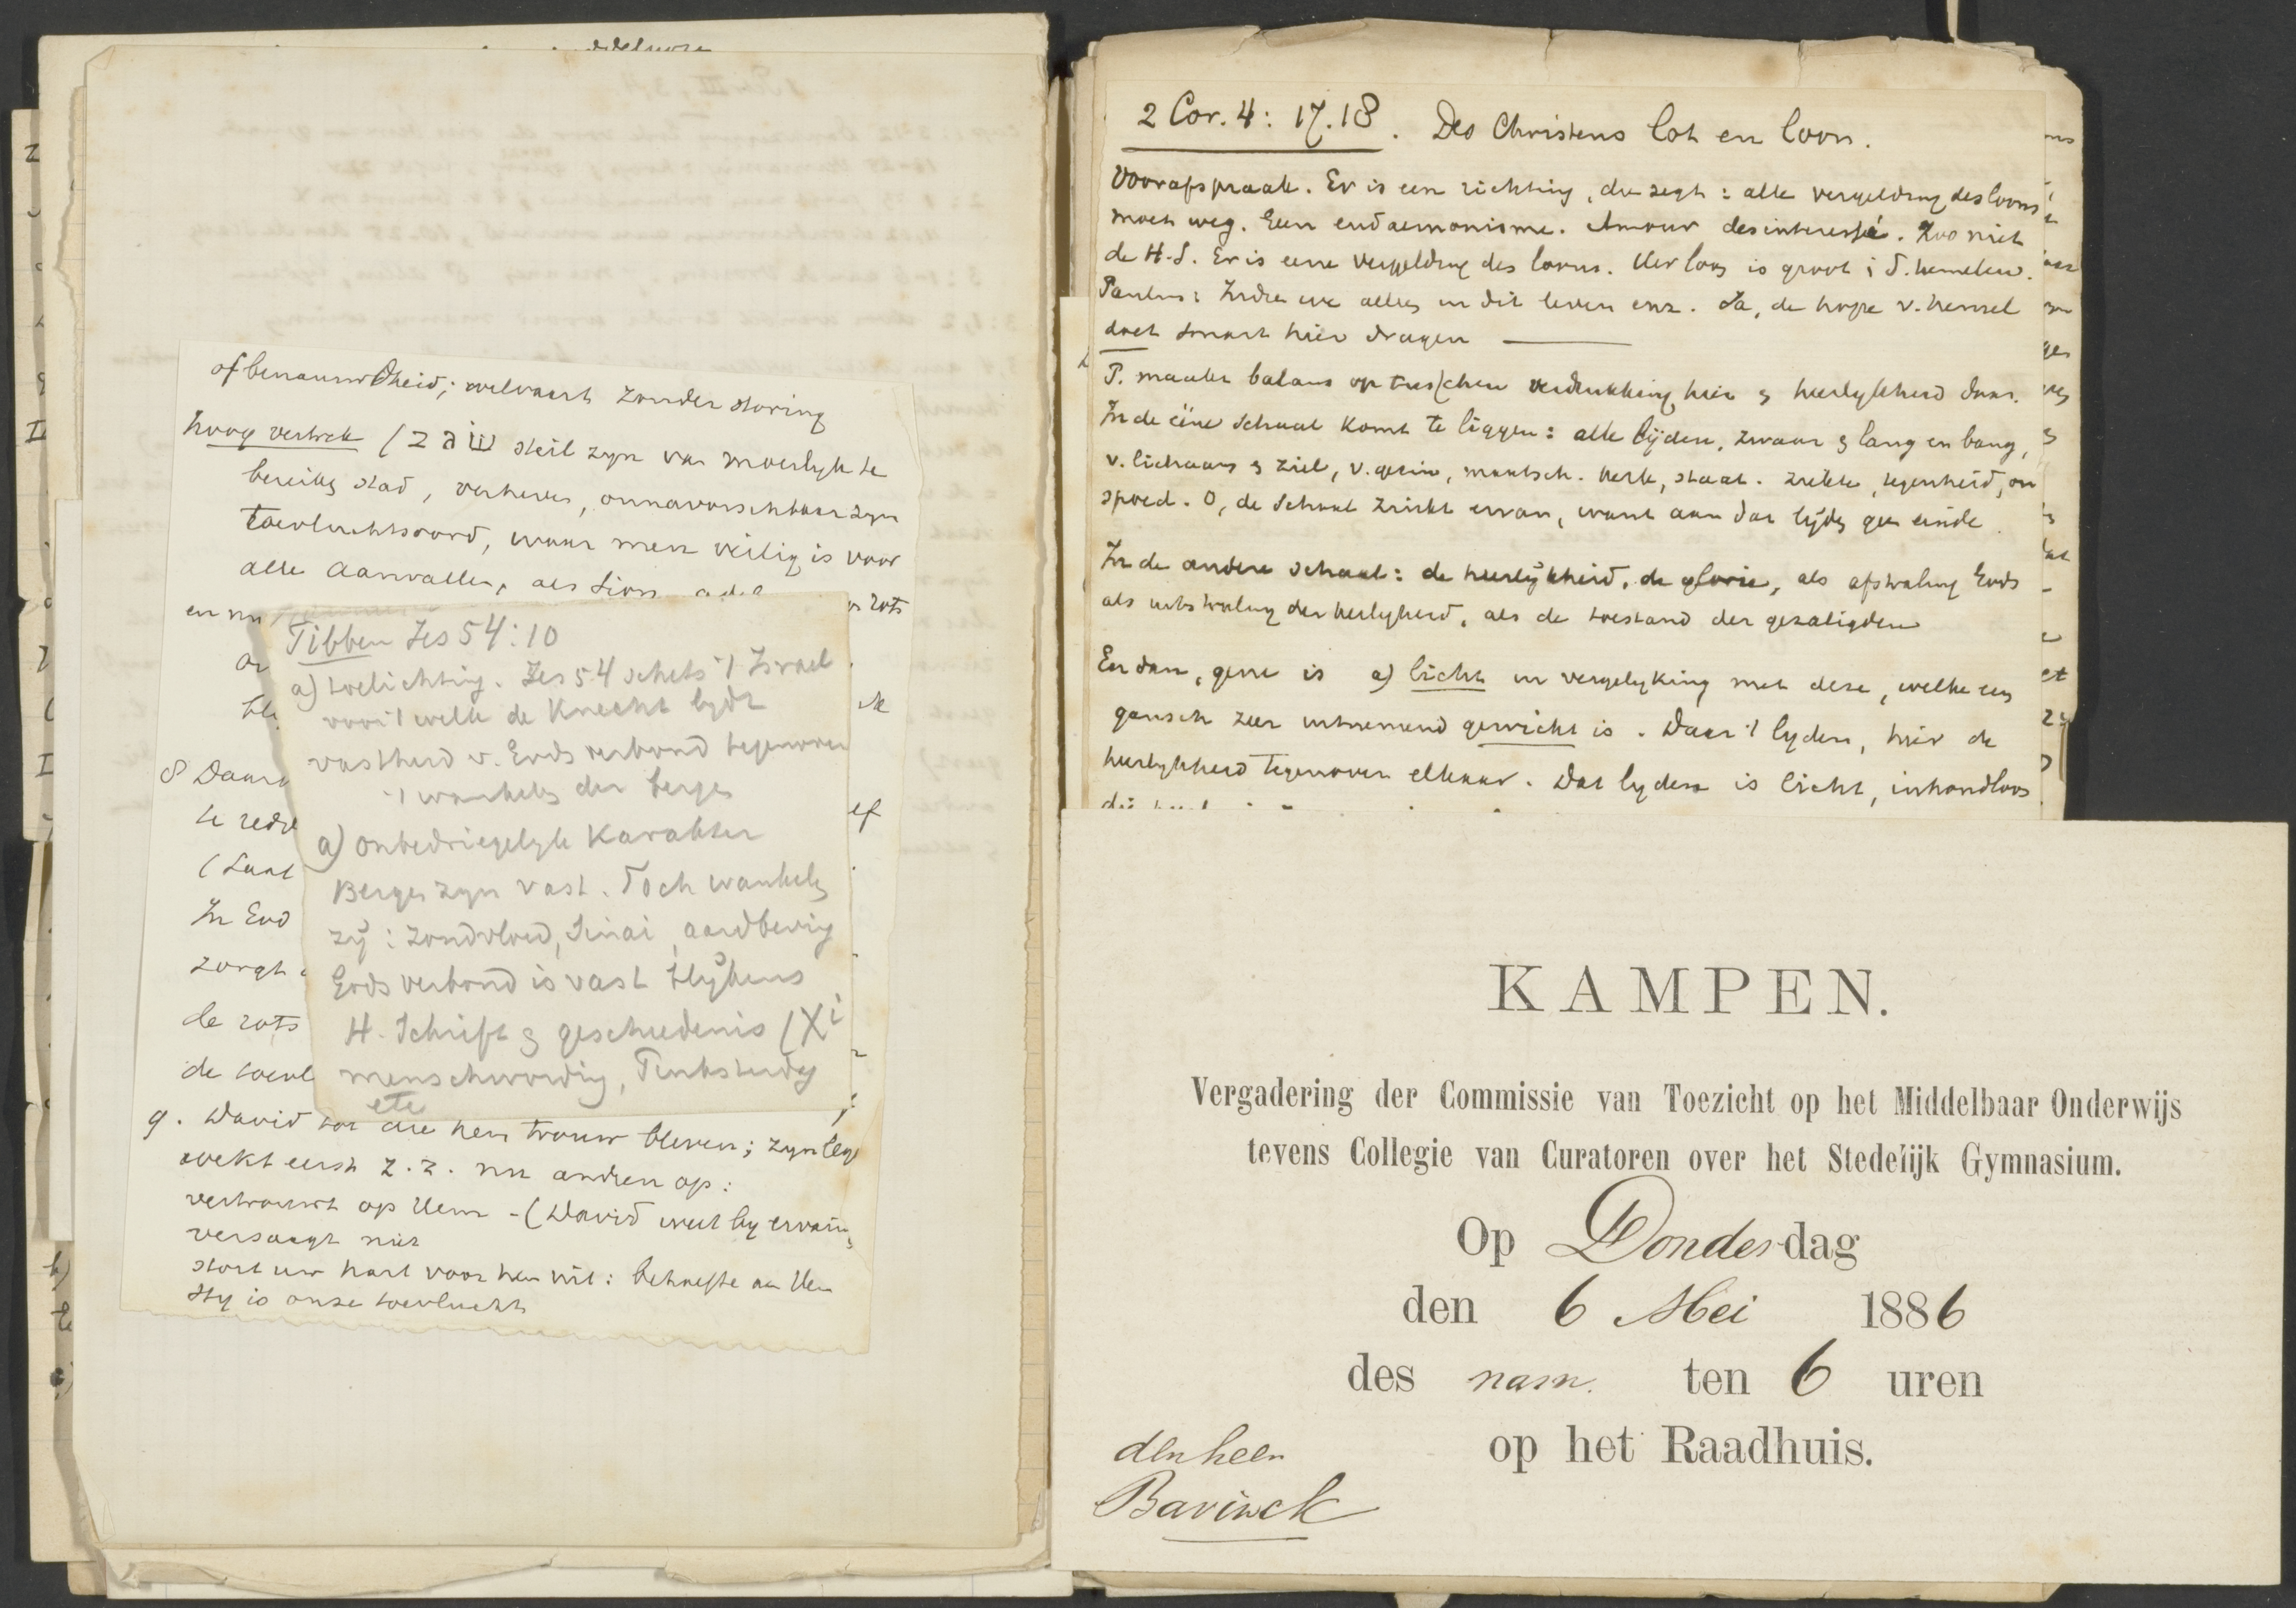 of benauwdheid; welvaart zonder storing
hoog vertrek (שגב steil zyn van moeilyk te
bereiken stad, verheven, onnavorschbaar zyn
toevluchtsoord, waar men veilig is voor
alle aanvallen, als Sion
en nu rots
8 Daar
te redd
(Laat
In God
zorgt
de rots
de toevl
9. David tot die hem trouw bleven; zyn
wekt eerst z. z. nu andren op:
vertrouwt op Hem - (David weet by ervarin
versaagt niet
stort uw hart voor hem uit: behoefte aan Hem
Hy is onze toevlucht
Tibben Jes 54:10
a) toelichting. Jes 54 schets 't Israel
voor 't welk de Knecht lydt
vastheid v. Gods verbond tegenover
't wankelen der bergen
a) onbedriegelyk karakter
Bergen zyn vast. Toch wankelen
zij: zondvloed, Sinai, aardbeving
Gods verbond is vast blijkens
H. Schrift en geschiedenis (Xi
menschwording, Pinksterdag
etc
2 Cor. 4: 17.18. Des Christens lot en loon.
Voorafspraak. Er is een richting, die zegt: alle vergelding des loons
moet weg. Geen eudaemonisme. Amour desinteressé. Zoo niet
de H.S. Er is eene vergelding des loons. Uw loon is groot i d. hemelen.
Paulus: Indien we alleen in dit leven enz. Ja, de hope v. hemel
doet smart hier dragen
P. maakt balans op tusschen verdrukking hier en heerlykheid daar.
In de eéne schaal komt te liggen: alle lijden, zwaar en lang en bang,
v. lichaam en ziel, v. gezin, maatsch. kerk, staat. ziekte, tegenheid, on
spoed. O, de schaal zinkt ervan, want aan dat lijden geen einde.
In de andere schaal: de heerlijkheid, de glorie, als afstraling Gods
als uitstraling der heiligheid, als de toestand der gezaligden
En dan, gene is a) licht in vergelyking met deze, welke een
gansch zeer uitnemend gewicht is. Daar 't lyden, hier de
heerlykheid tegenover elkaar. Dat lyden is licht, inhoudloos
KAMPEN.
Vergadering der Commissie van Toezicht op het Middelbaar Onderwijs
tevens Collegie van Curatoren over het Stedelijk Gymnasium.
Op Donderdag
den 6 Mei 1886
des nam. ten 6 uren
op het Raadhuis.
den heer
Bavinck